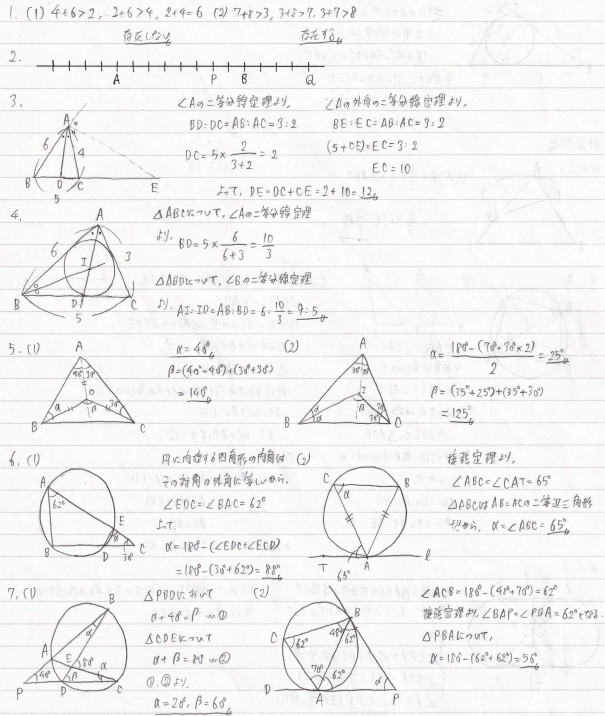 1. (1) 4+6>2, 2+6>4, 2+4=6 (2) 7+8>3, 3+8>7, 3+7>8
存在しない 存在する
2.
A P B Q
3.
∠Aの二等分線定理より, ∠Aの外角の二等分線定理より,
BD:DC=AB:AC=3:2 BE:EC=AB:AC=3:2
DC=5×2/(3+2)=2 (5+CE):EC=3:2
EC=10
よって, DE=DC+CE=2+10=12
A 6 4 B D C E 5
4. △ABCについて, ∠Aの二等分線定理
より, BD=5×6/(6+3)=10/3
△ABDについて, ∠Bの二等分線定理
より, AI:ID=AB:BD=6:10/3=9:5
A 6 3 I B D C 5
5. (1) α=40° (2) α=(180°-(70°+30°×2))/2=25°
β=(40°+40°)+(30°+30°) β=(35°+25°)+(35°+30°)
=140° =125°
A 40° 30° O α β 30° B C
A I α β B C
6. (1) 円に内接する四角形の内角は (2) 接弦定理より,
その対角の外角に等しいから, ∠ABC=∠CAT=65°
∠EDC=∠BAC=62° △ABCはAB=ACの二等辺三角形
よって だから, α=∠ABC=65°
α=180°-(∠EDC+∠ECD)
=180°-(30°+62°)=88°
A 62° E α B D C 30°
C α B T A l 65°
7. (1) △PBDにおいて (2) ∠ACB=180°-(48°+70°)=62°
α+40°=β …① 接弦定理より, ∠BAP=∠PBA=62°となる.
△CDEについて △PBAについて,
α+β=80° …② α=180°-(62°+62°)=56°
①,②より,
α=20°, β=60°
B α A E 80° α P 40° β D C
B C 62° 48° 62° 70° 62° α D A P